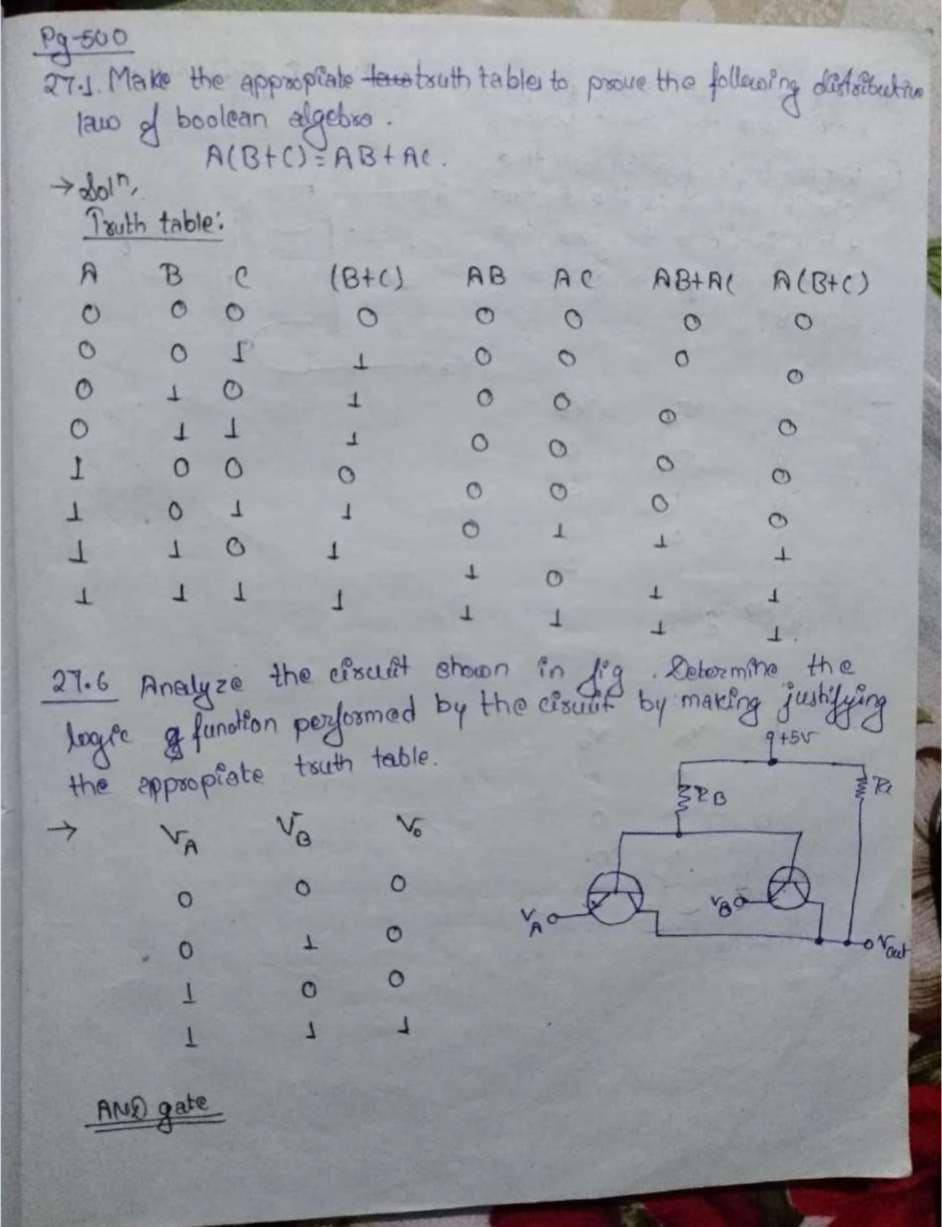 Pg-500
27.1. Make the appropiate truth tables to prove the following distributive
law of boolean algebra.
A(B+C)=AB+AC.
→ Solⁿ,
Truth table:
A B C (B+C) AB AC AB+AC A(B+C)
0 0 0 0 0 0 0 0
0 0 1 1 0 0 0 0
0 1 0 1 0 0 0 0
0 1 1 1 0 0 0 0
1 0 0 0 0 0 0 0
1 0 1 1 0 1 1 1
1 1 0 1 1 0 1 1
1 1 1 1 1 1 1 1.
27.6 Analyze the circuit shown in fig. Determine the
logic function performed by the circuit by making justifying
the appropiate truth table.
+5V
RB
→ VA VB Vo
0 0 0
0 1 0
1 0 0
1 1 1
VA
VB
Vout
AND gate